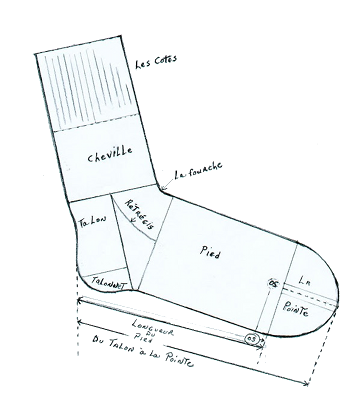 Les Cotes
Cheville
La fourche
Talon
Rétrécis
Pied
Talonnet
05
Ln
Pointe
05
Longueur
du
Pied
Du Talon à la Pointe